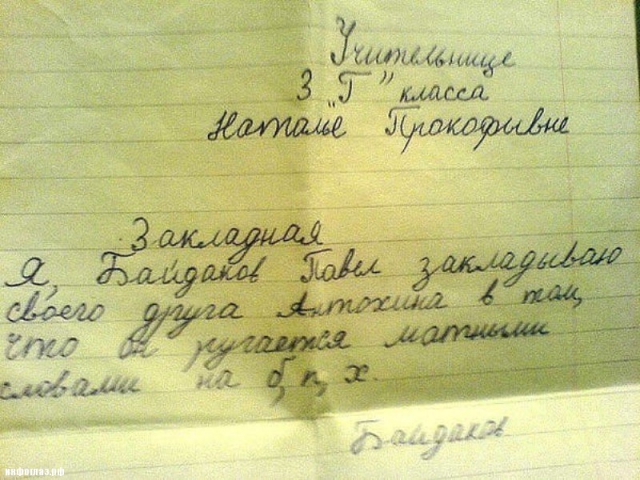 Учительнице
3 „Г” класса
Наталье Прокофывне
Закладная
Я, Байдаков Павел закладываю
своего друга Антохина в том,
что он ругается матными
словами на б, п, х.
Байдаков